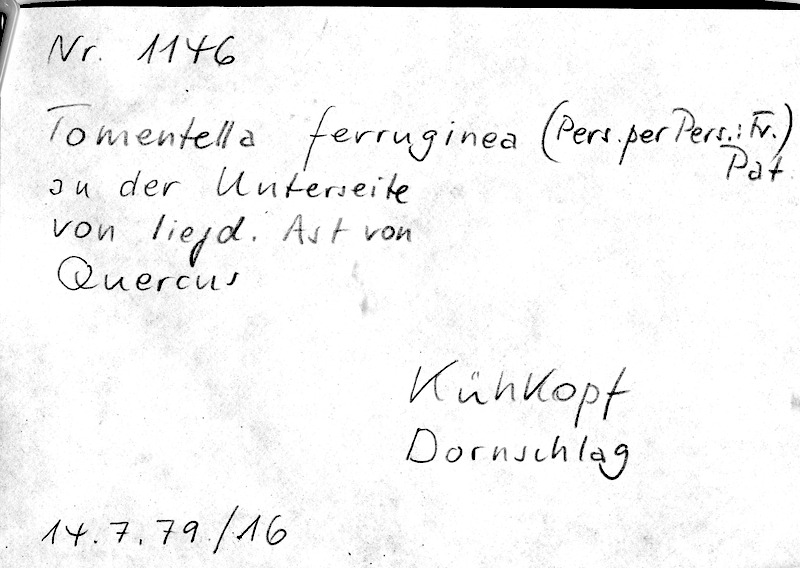 Nr. 1146
Tomentella ferruginea (Pers. per Pers.: Fr.)
Pat.
an der Unterseite
von liegd. Ast von
Quercus
Kühkopf
Dornschlag
14.7.79/16